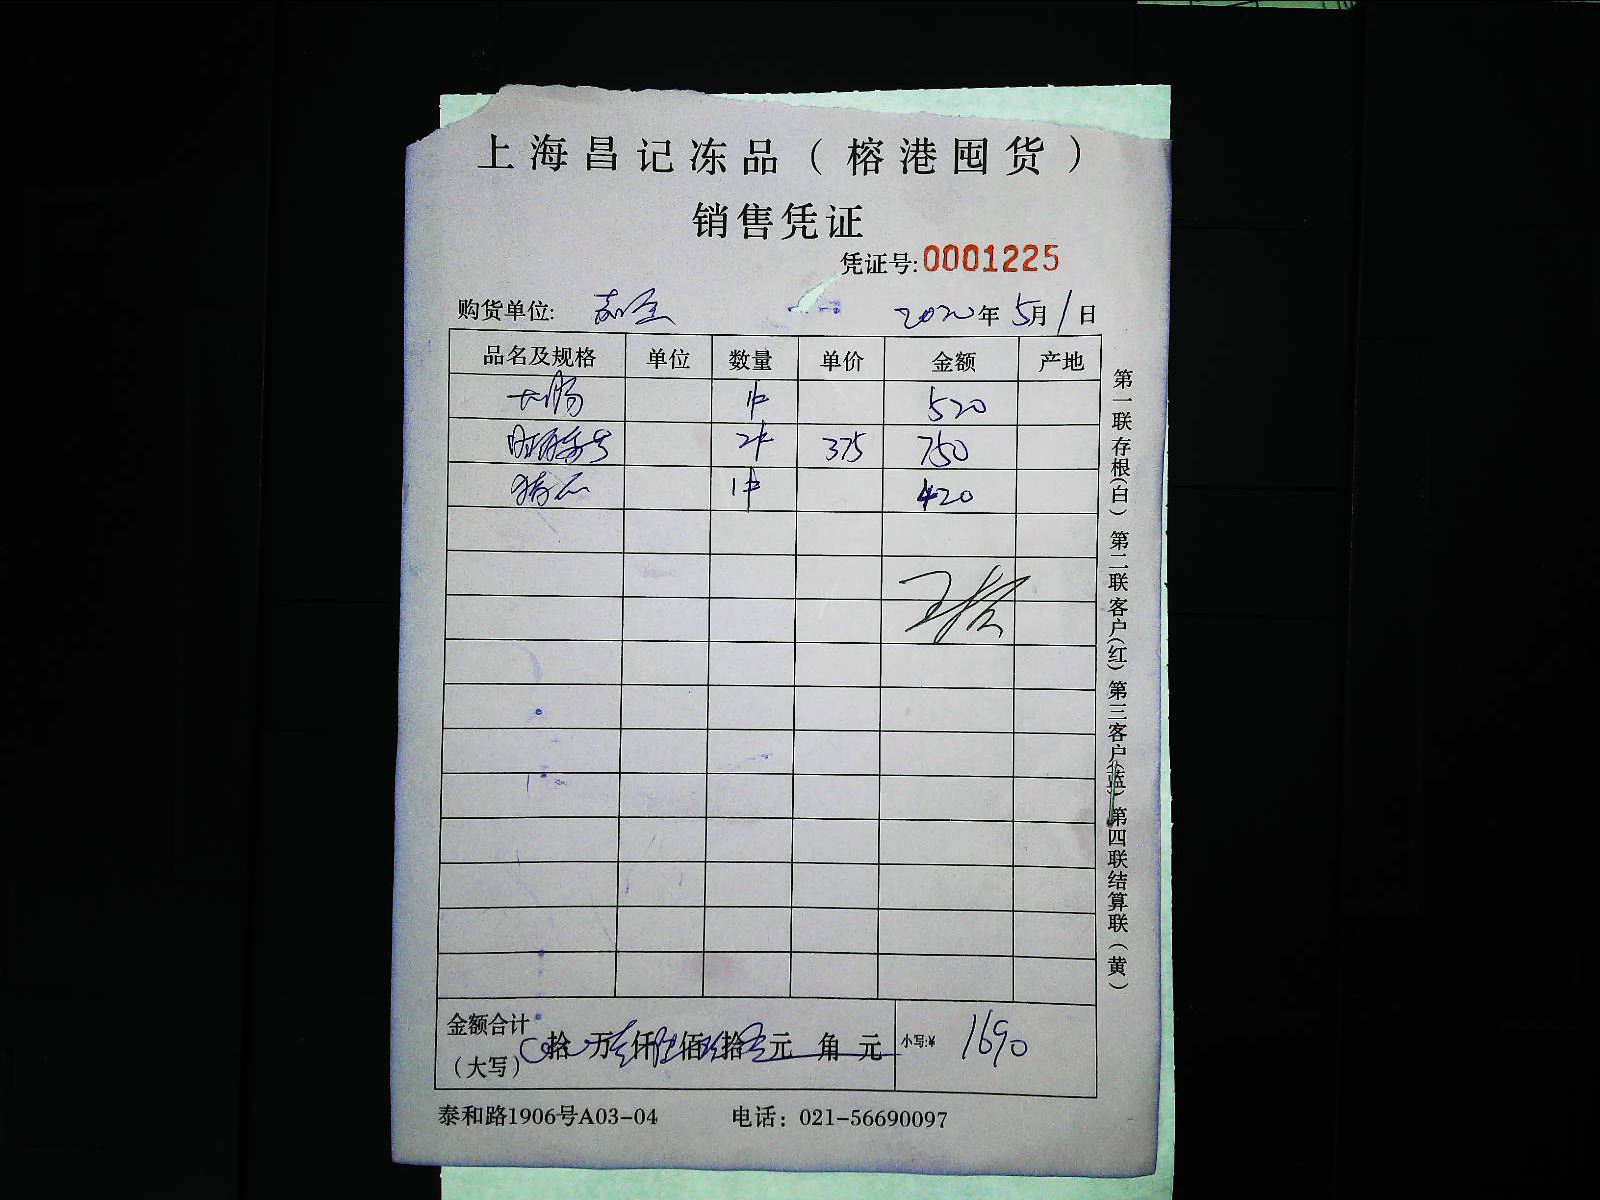 上海昌记冻品（榕港囤货）
销售凭证
凭证号:0001225
购货单位: 2020年5月1日
品名及规格 单位 数量 单价 金额 产地
大肠 1件 520
2件 375 750
1件 420
金额合计（大写） 拾 万 仟 佰 拾 元 角 元 小写:¥ 1690
泰和路1906号A03-04 电话：021-56690097
第一联存根(白) 第二联客户(红) 第三客户(蓝) 第四联结算联(黄)